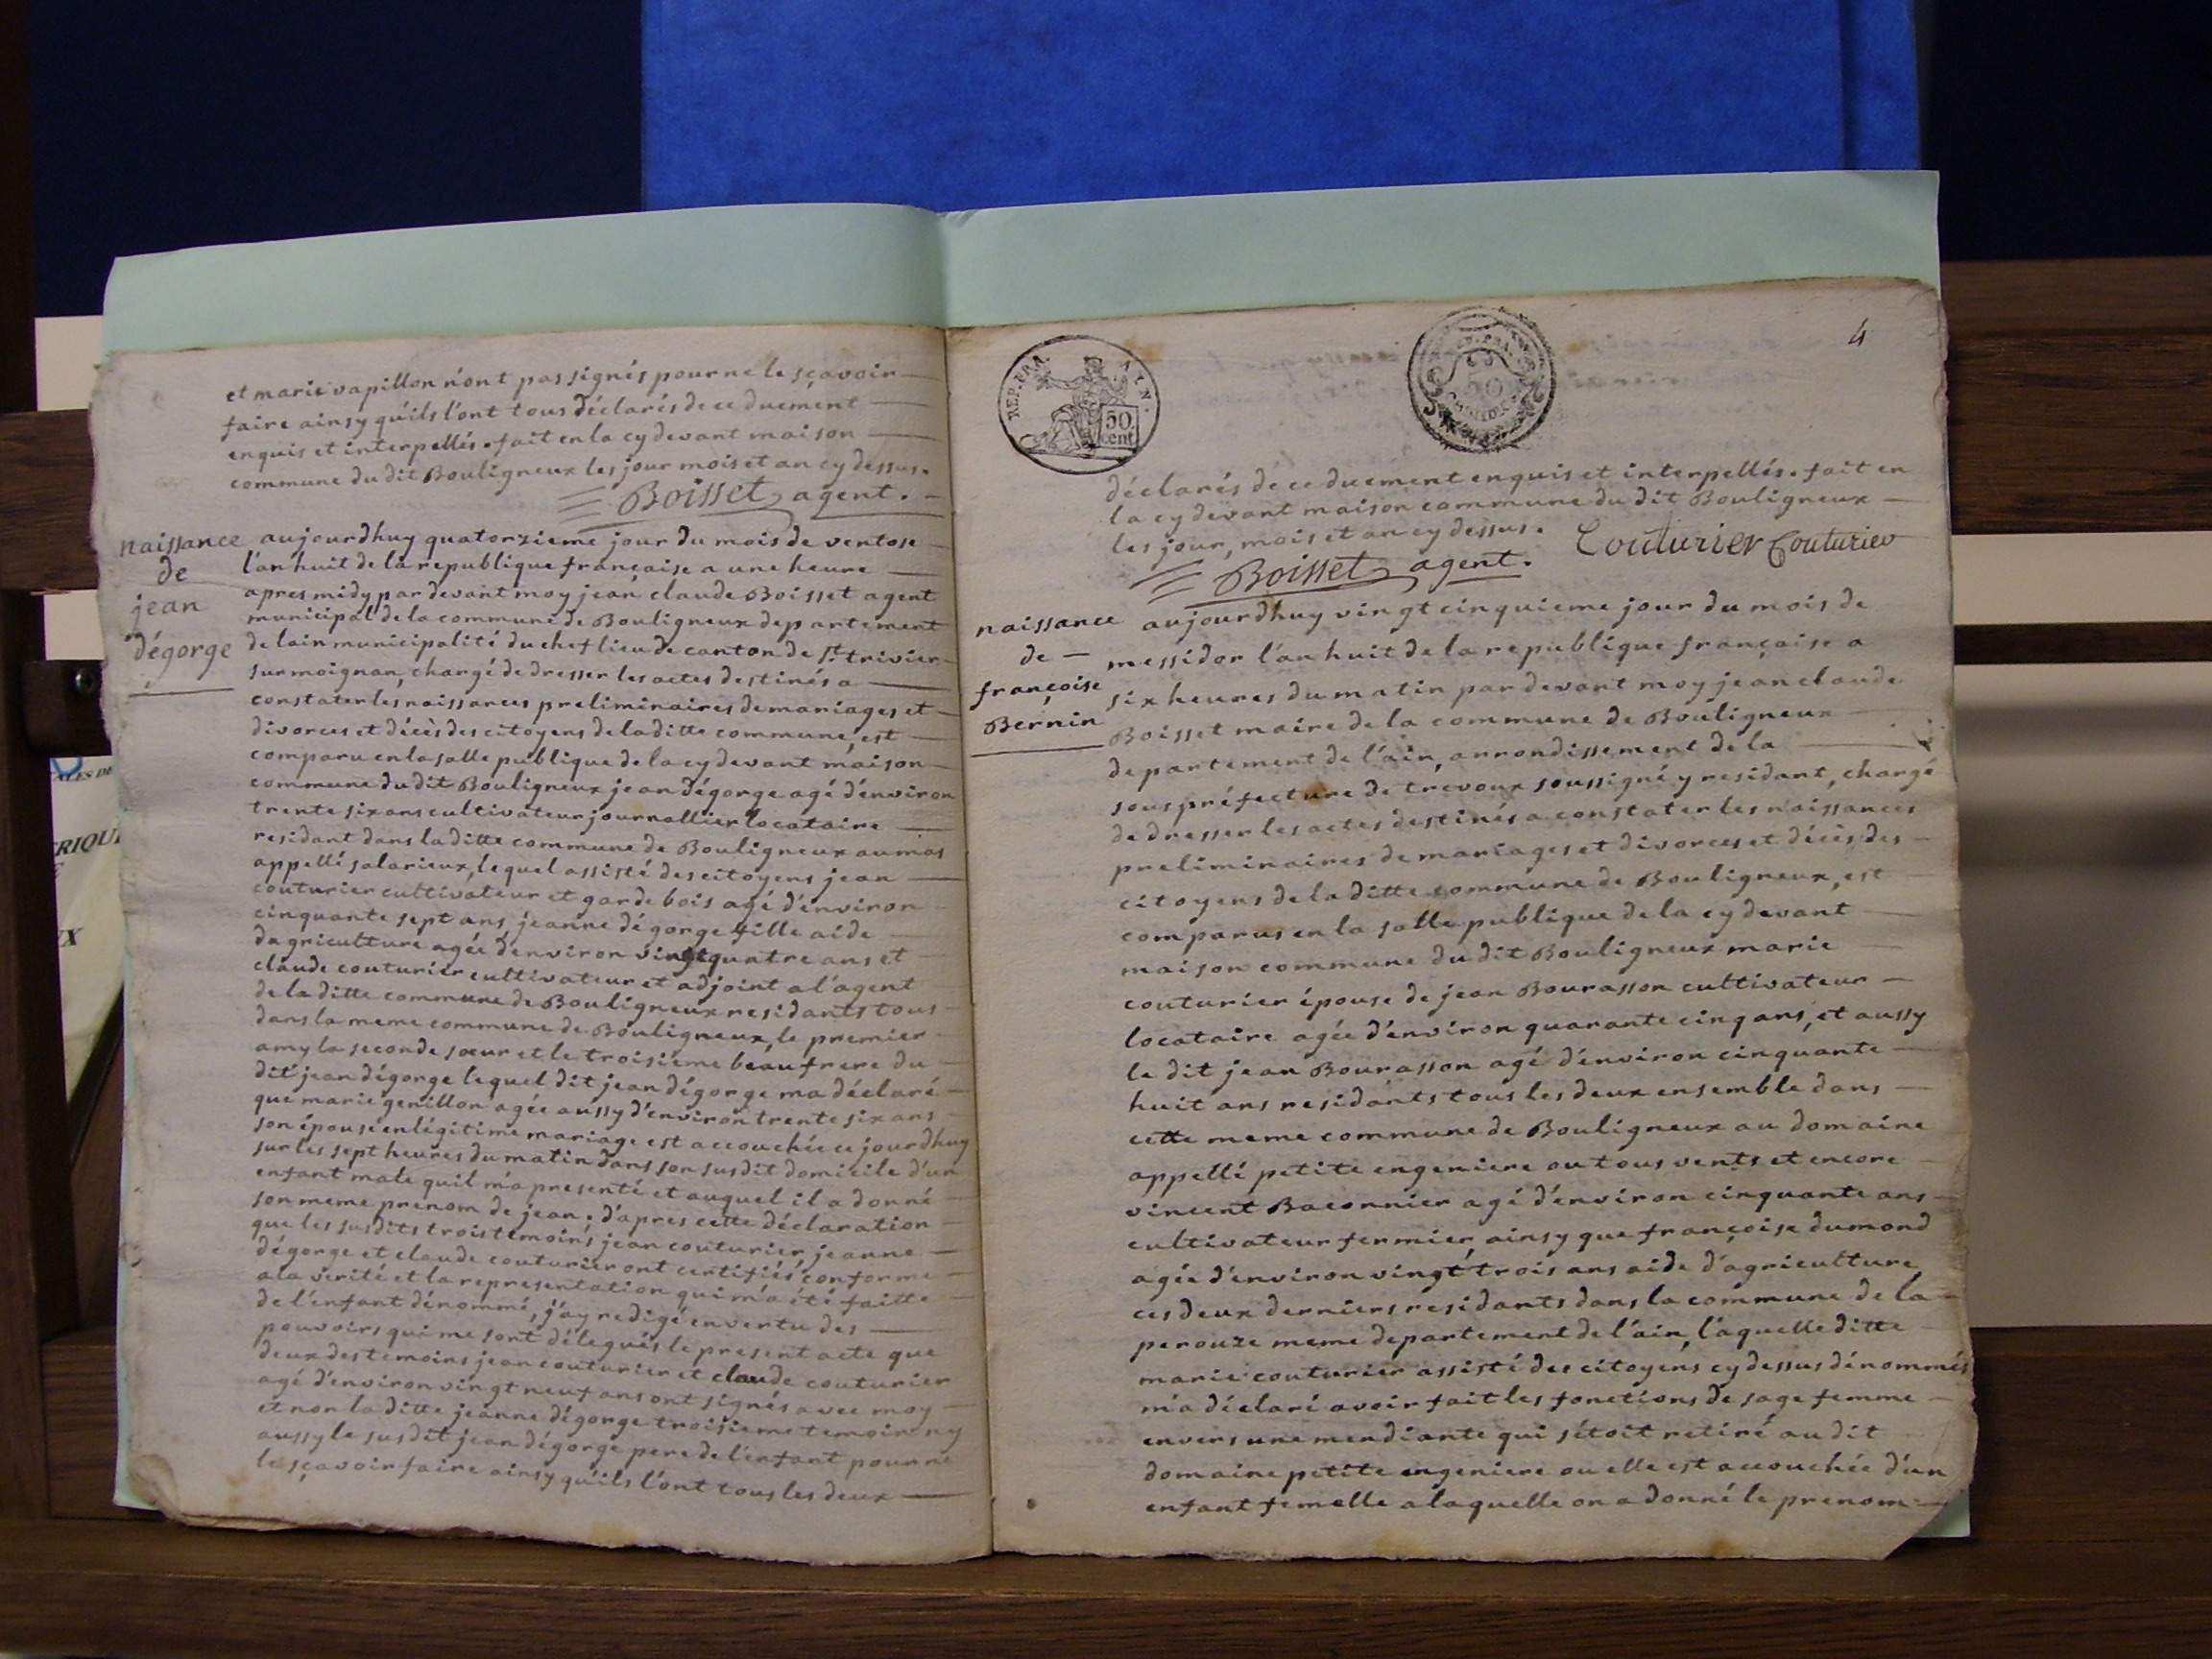 et marie vapillon n'ont pas signés pour ne le sçavoir
faire ainsy qu'ils l'ont tous déclarés de ce duement
enquis et interpellés. fait en la cy devant maison
commune du dit Bouligneux les jour mois et an cy dessus.
Boisset agent.
naissance
de
jean
dégorge
aujourdhuy quatorzieme jour du mois de ventose
l'an huit de la republique française a une heure
apres midy par devant moy jean claude Boisset agent
municipal de la commune de Bouligneux departement
de lain municipalité du chef lieu de canton de St. trivier
sur moignan, chargé de dresser les actes destinés a
constater les naissances preliminaires de mariages et
divorces et décès des citoyens de la ditte commune, est
comparu en la salle publique de la cy devant maison
commune du dit Bouligneux jean dégorge agé d'environ
trente six ans cultivateur journallier locataire
residant dans la ditte commune de Bouligneux au mas
appellé salarieux, lequel assisté des citoyens jean
couturier cultivateur et garde bois agé d'environ
cinquante sept ans, jeanne dégorge fille aide
dagriculture agée denviron vingt quatre ans et
claude couturier cultivateur et adjoint a l'agent
de la ditte commune de Bouligneux residants tous
dans la meme commune de Bouligneux, le premier
amy la seconde sœur et le troisieme beaufrere du
dit jean dégorge lequel dit jean dégorge ma déclaré
que marie genillon agée aussy d'environ trente six ans
son épouse en légitime mariage est accouchée ce jourdhuy
sur les sept heures du matin dans son susdit domicile d'un
enfant male quil m'a presenté et auquel il a donné
son meme prenom de jean. d'apres cette déclaration
que les susdits trois temoins jean couturier, jeanne
dégorge et claude couturier ont certifiés conforme
a la verité et la representation qui m'a été faitte
de l'enfant dénommé, j'ay redigé en vertu des
pouvoirs qui me sont délegués le present acte que
deux des temoins jean couturier et claude couturier
agé d'environ vingt neuf ans ont signés avec moy
et non la ditte jeanne dégorge troisieme temoin ny
aussy le susdit jean dégorge pere de l'enfant pour ne
le sçavoir faire ainsy qu'ils l'ont tous les deux
REP. FRA.
AYN.
50
cent
50
4
déclarés de ce duement enquis et interpellés. fait en
la cy devant maison commune du dit Bouligneux
les jour, mois et an cy dessus.
Couturier Couturier
Boisset agent.
naissance
de
françoise
Bernin
aujourdhuy vingt cinquieme jour du mois de
messidor l'an huit de la republique française a
six heures du matin par devant moy jean claude
Boisset maire de la commune de Bouligneux
departement de l'ain, arrondissement de la
sous préfecture de trevoux soussigné y residant, chargé
de dresser les actes destinés a constater les naissances
preliminaires de mariages et divorces et décès des
citoyens de la ditte commune de Bouligneux, est
comparus en la salle publique de la cy devant
maison commune du dit Bouligneux marie
couturier épouse de jean Bourasson cultivateur
locataire agée d'environ quarante cinq ans, et aussy
le dit jean Bourasson agé d'environ cinquante
huit ans residants tous les deux ensemble dans
cette meme commune de Bouligneux au domaine
appellé petite engeniere ou tous vents et encore
vincent Baconnier agé d'environ cinquante ans
cultivateur fermier, ainsy que françoise dumond
agée d'environ vingt trois ans aide d'agriculture
ces deux derniers residants dans la commune de la
perouze meme departement de l'ain, laquelle ditte
marie couturier assisté des citoyens cy dessus dénommés
m'a déclaré avoir fait les fonctions de sage femme
envers une mendiante qui s'étoit retiré au dit
domaine petite engeniere ou elle est accouchée d'un
enfant femelle a laquelle on a donné le prenom